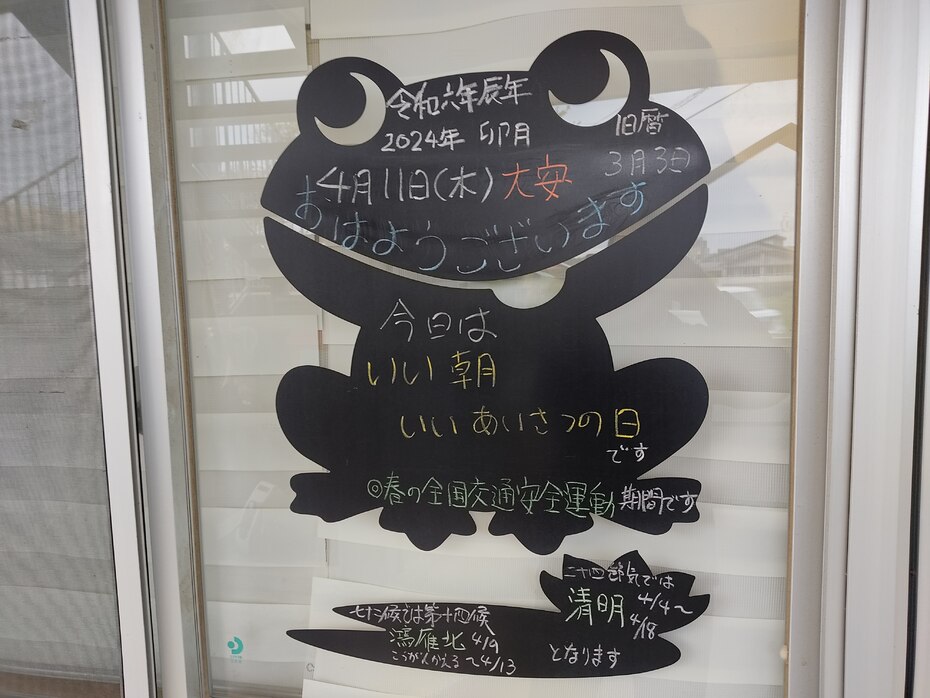 令和六年辰年
2024年 卯月
旧暦
3月3日
4月11日(木) 大安
おはようございます
今日は
いい朝
いいあいさつの日
です
◎春の全国交通安全運動期間です
二十四節気では
清明 4/4〜
4/18
となります
七十二候では第十四候
鴻雁北 4/9
こうがんかえる 〜4/13